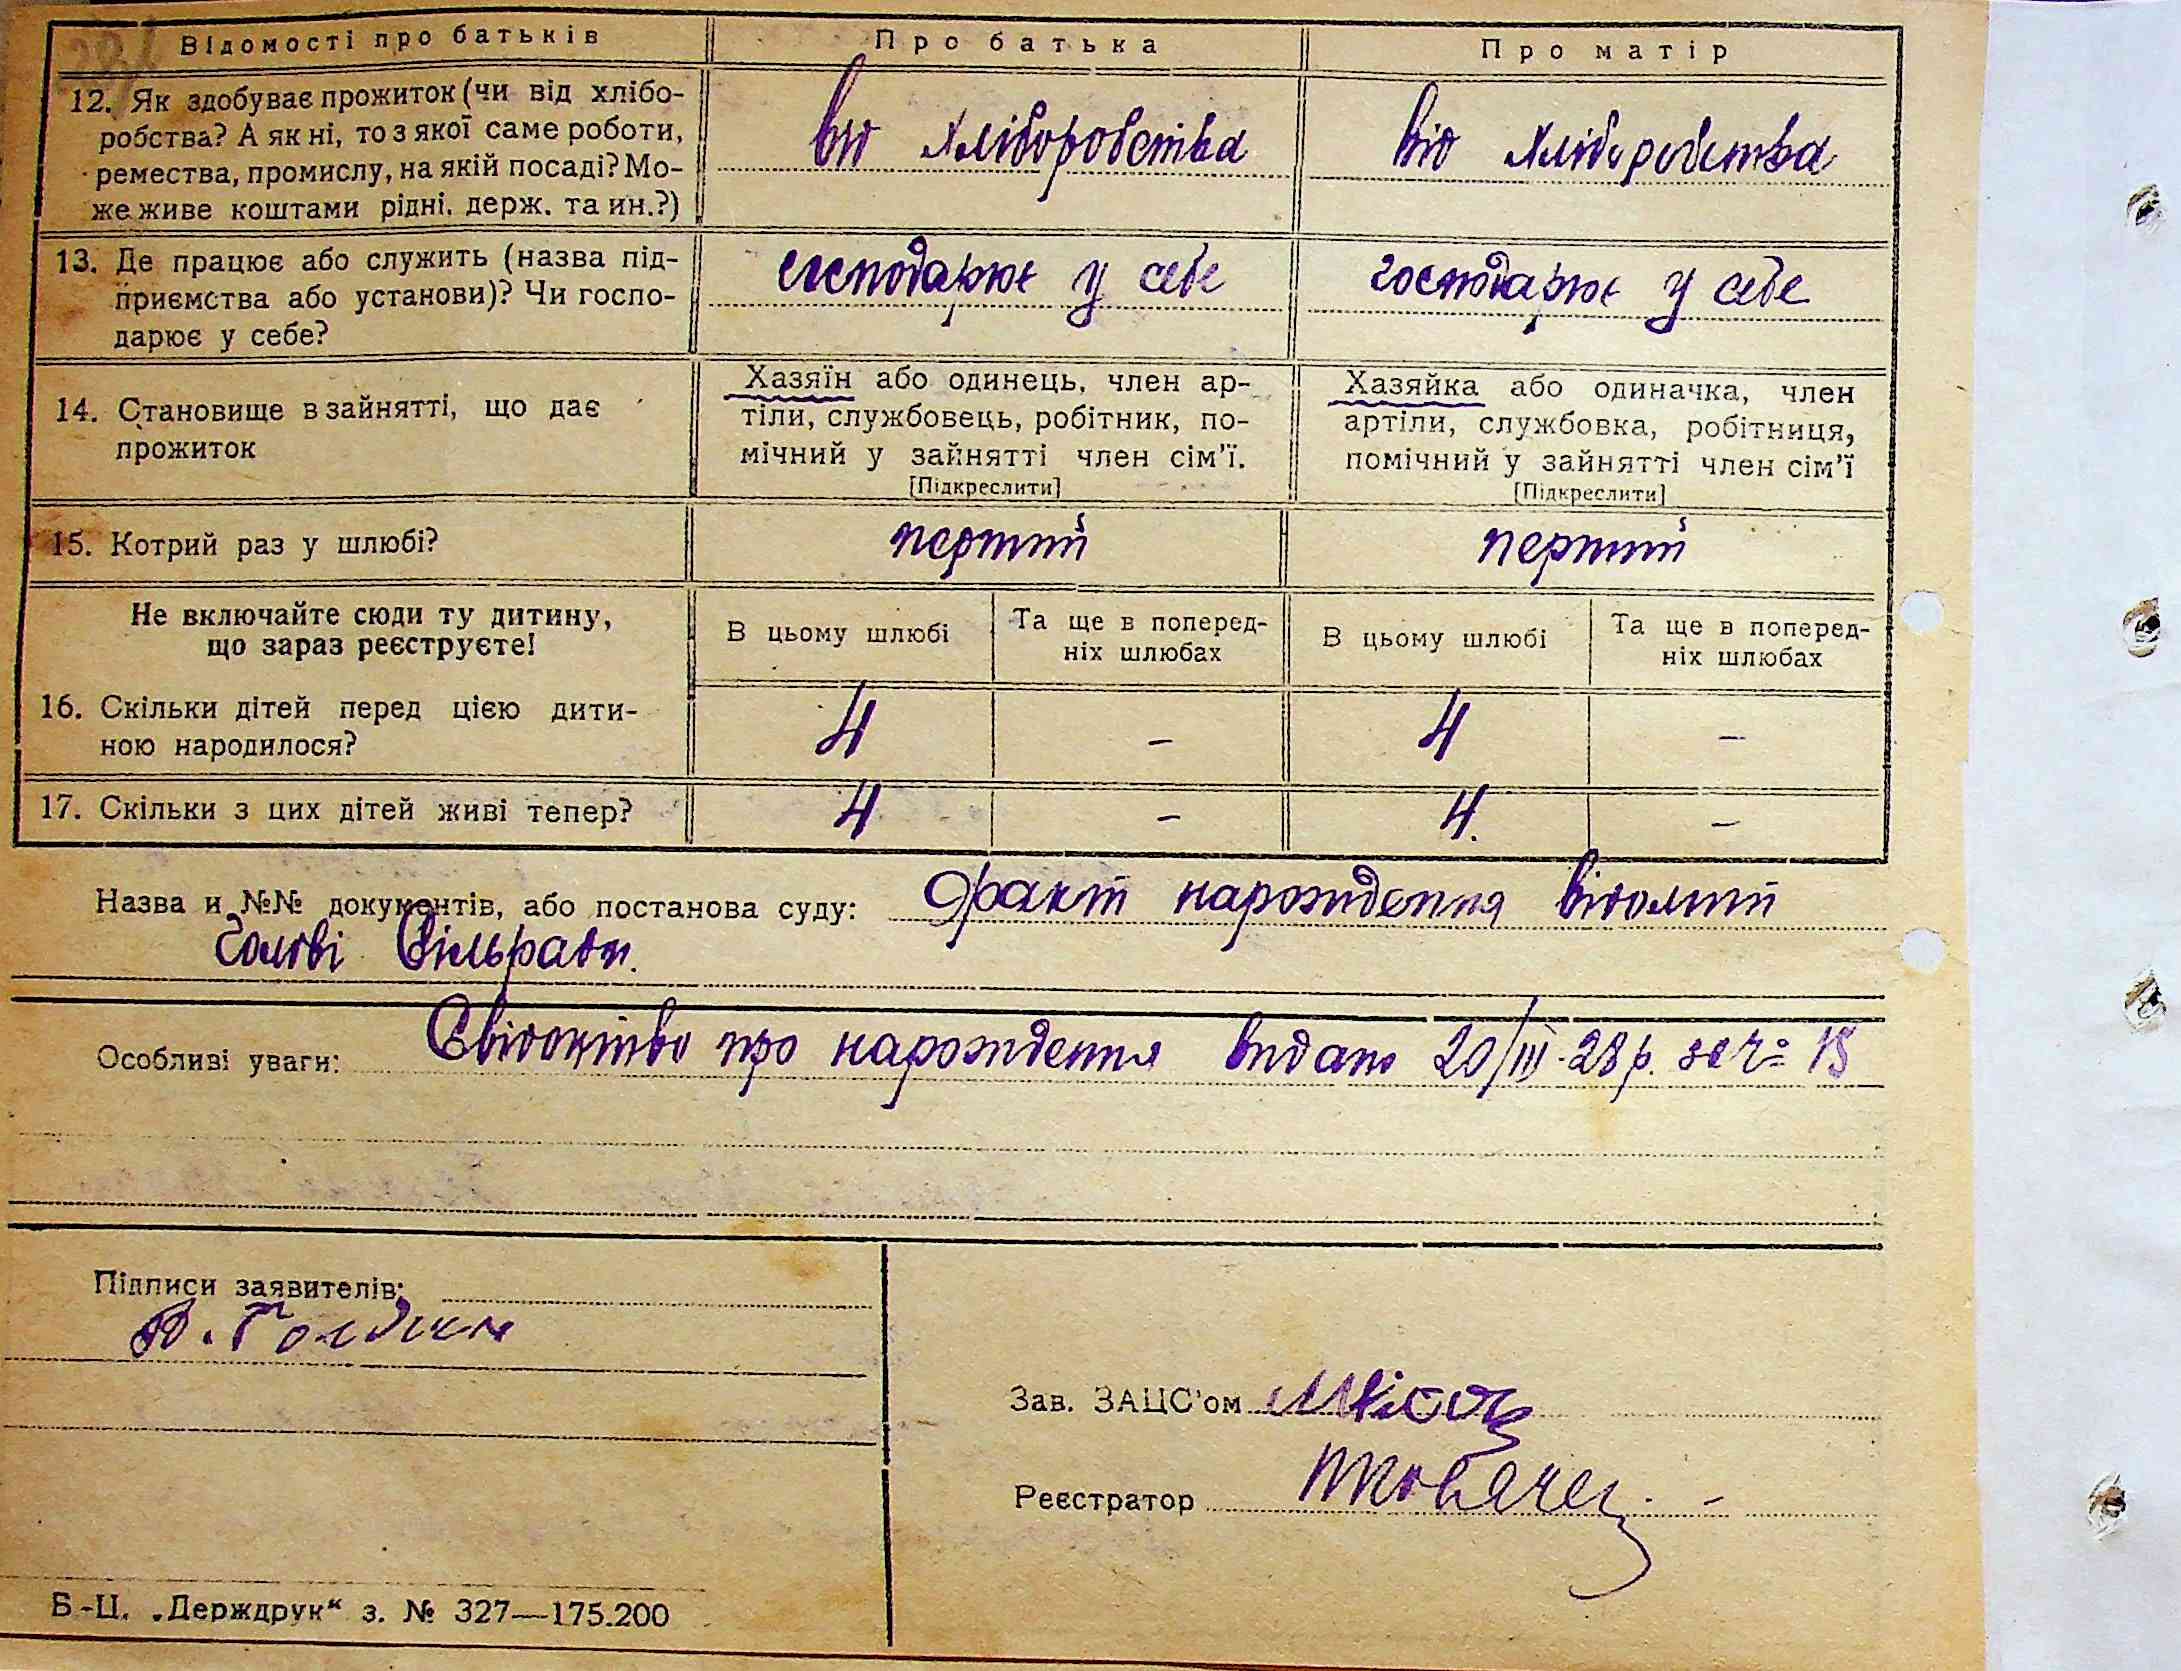 Відомості про батьків
Про батька
Про матір
12. Як здобуває прожиток (чи від хлібо-
робства? А як ні, то з якої саме роботи,
ремества, промислу, на якій посаді? Мо-
же живе коштами рідні, держ. та ин.?)
від хліборобства
від хліборобства
13. Де працює або служить (назва під-
приємства або установи)? Чи госпо-
дарює у себе?
господарює у себе
господарює у себе
14. Становище в зайнятті, що дає
прожиток
Хазяїн або одинець, член ар-
тіли, службовець, робітник, по-
мічний у зайнятті член сім'ї.
[Підкреслити]
Хазяйка або одиначка, член
артіли, службовка, робітниця,
помічний у зайнятті член сім'ї
[Підкреслити]
15. Котрий раз у шлюбі?
перший
перший
Не включайте сюди ту дитину,
що зараз реєструєте!
В цьому шлюбі
Та ще в поперед-
ніх шлюбах
В цьому шлюбі
Та ще в поперед-
ніх шлюбах
16. Скільки дітей перед цією дити-
ною народилося?
4
–
4
–
17. Скільки з цих дітей живі тепер?
4
–
4.
–
Назва и №№ документів, або постанова суду: Факт народження відомий
Голові Сільради.
Особливі уваги: Свідоцтво про народження видано 20/III-28 р. за № 15
Підписи заявителів:
Зав. ЗАЦС'ом
Реєстратор
Б-Ц. „Держдрук“ з. № 327—175.200